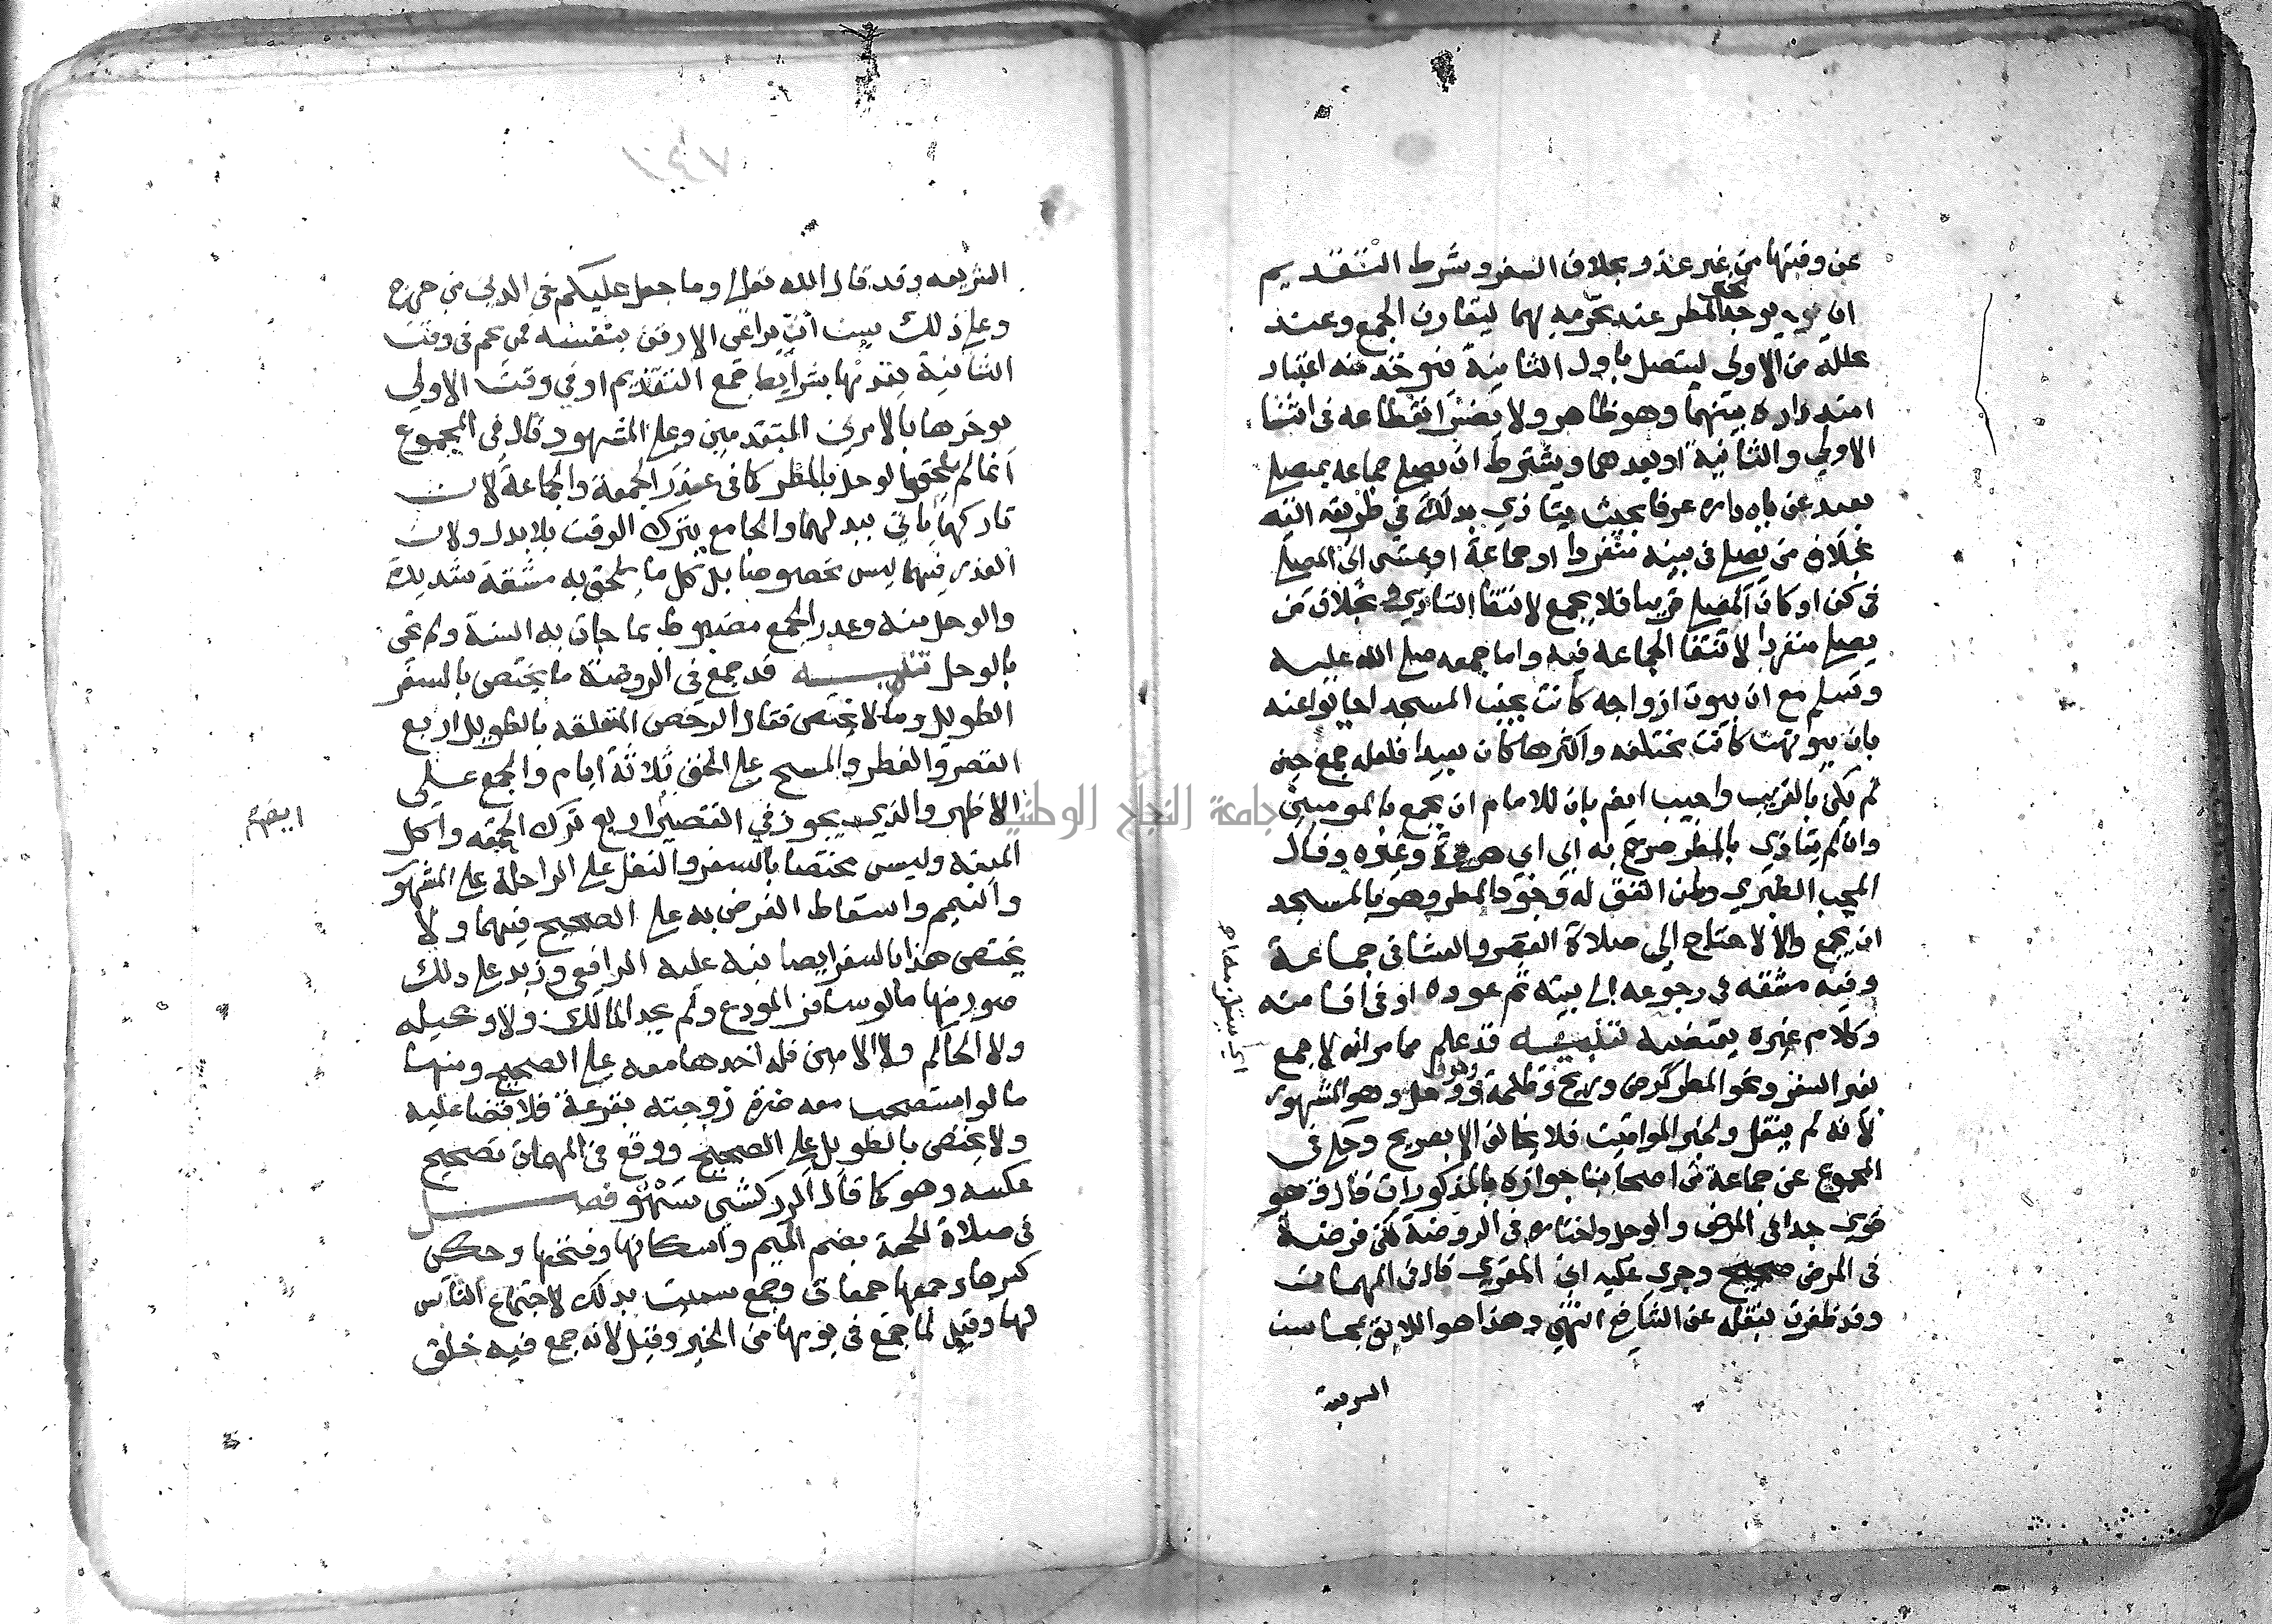 عن وقتها من غير عذر بخلاف السفر وشرط التقديم
ان يوجد المطر عند تحرمه بهما ليقارن الجمع وعند
تحلله من الاولي ليتصل باول الثانية فيوخذ منه اعتبار
امتداده بينهما وهو ظاهر ولا يضر انقطاعه في اثنا
الاولي والثانية او بعدهما ويشترط ان يصلي جماعه بمصلي
بعيد عن باب داره عرفا بحيث يتاذي بذلك في طريقه اليه
بخلاف من يصلي في بيته منفردا او جماعة او يمشي الي المصلي
في كن او كان المصلي قريبا فلا يجمع لانتفا التاذي وبخلاف من
يصلي منفردا لانتفا الجماعه فيه واما جمعه صلي الله عليه
وسلم مع ان بيوت ازواجه كانت بجنب المسجد اجابوا عنه
بان بيوتهن كانت مختلفه واكثرها كان بعيدا فلعله جمع حين
لم يكن بالقريب واجيب ايضا بان للامام ان يجمع بالمومنين
وان لم يتاذي بالمطر صرح به ابن ابي هريرة وغيره وقال
المحب الطبري ولمن اتفق له وجود المطر وهو بالمسجد
ان يجمع والا لاحتاج الي صلاة العصر والعشا في جماعة
وفيه مشقه في رجوعه الي بيته ثم عوده او في اقامته
وكلام غيره يقتضيه تنبيه قد علم مما مر انه لا جمع
بغير السفر ونحو المطر كمرض وريح وظلمة وخوف ووحل وهو المشهور
لانه لم ينقل ولخبر المواقيت فلا يخالف الا بصريح وحكي في
المجموع عن جماعة من اصحابنا جوازه بالمذكورات قال وهو
قوي جدا في المرض والوحل واختاره في الروضة لكن فرضه
في المرض وجري عليه ابن المقري قال في المهمات
وقد ظفرت بنقله عن الشافعي انتهي وهذا هو اللائق بمحاسن
الشريعة
الشريعه وقد قال الله تعالي وما جعل عليكم في الدين من حرج
وعلي ذلك يسن ان يراعي الارفق بنفسه فمن يحم في وقت
الثانية يقدمها بشرايط جمع التقديم او في وقت الاولي
يوخرها بالامرين المتقدمين وعلي المشهور قال في المجموع
انما لم يلحقوا الوحل بالمطر كما في عذر الجمعة والجماعة لان
تاركهما ياتي ببدلهما والجامع يترك الوقت بلا بدل ولان
العذر فيهما ليس مخصوصا بل كل ما يلحق به مشقة شديدة
والوحل منه وعذر الجمع مضبوط بما جات به السنة ولم تجي
بالوحل تنبيه قد جمع في الروضة ما يختص بالسفر
الطويل وما لا يختص فقال الرخص المتعلقه بالطويل اربع
القصر والفطر والمسح علي الخف ثلاثة ايام والجمع علي
الاظهر والذي يجوز في القصير اربع ترك الجمعه واكل
الميتة وليس مختصا بالسفر والنفل علي الراحلة علي المشهور
والتيمم واسقاط الفرض به علي الصحيح فيهما ولا
يختص هذا بالسفر ايضا نبه عليه الرافعي وزيد علي ذلك
صور منها ما لو سافر المودع ولم يجد المالك ولا وكيله
ولا الحاكم ولا الامين فله اخذها معه علي الصحيح ومنها
ما لو استصحب معه ضرة زوجته بقرعة فلا قضا عليه
ولا يختص بالطويل علي الصحيح ووقع في المهمات تصحيح
عكسه وهو كما قال الزركشي سهو فصل
في صلاة الجمعة بضم الميم واسكانها وفتحها وحكي
كسرها وجمعها جمعات وجمع سميت بذلك لاجتماع الناس
لها وقيل لما جمع في يومها من الخير وقيل لانه جمع فيه خلق
جامعة النجاح الوطنية